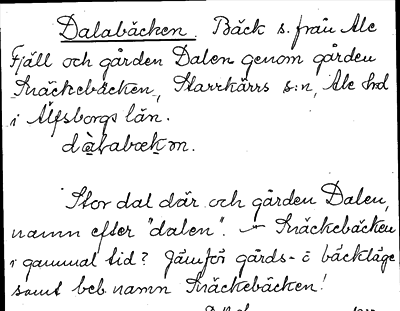 Dalabäcken. Bäck s. från Ale
Fjäll och gården Dalen genom gården
Snäckebäcken, Starrkärrs s:n, Ale hd
i Älfsborgs län.
dàlabækən.
Stor dal där och gården Dalen,
namn efter "dalen". — Snäckebäcken
i gammal tid? Jämför gårds- o bäckläge
samt beb. namn Snäckebäcken!